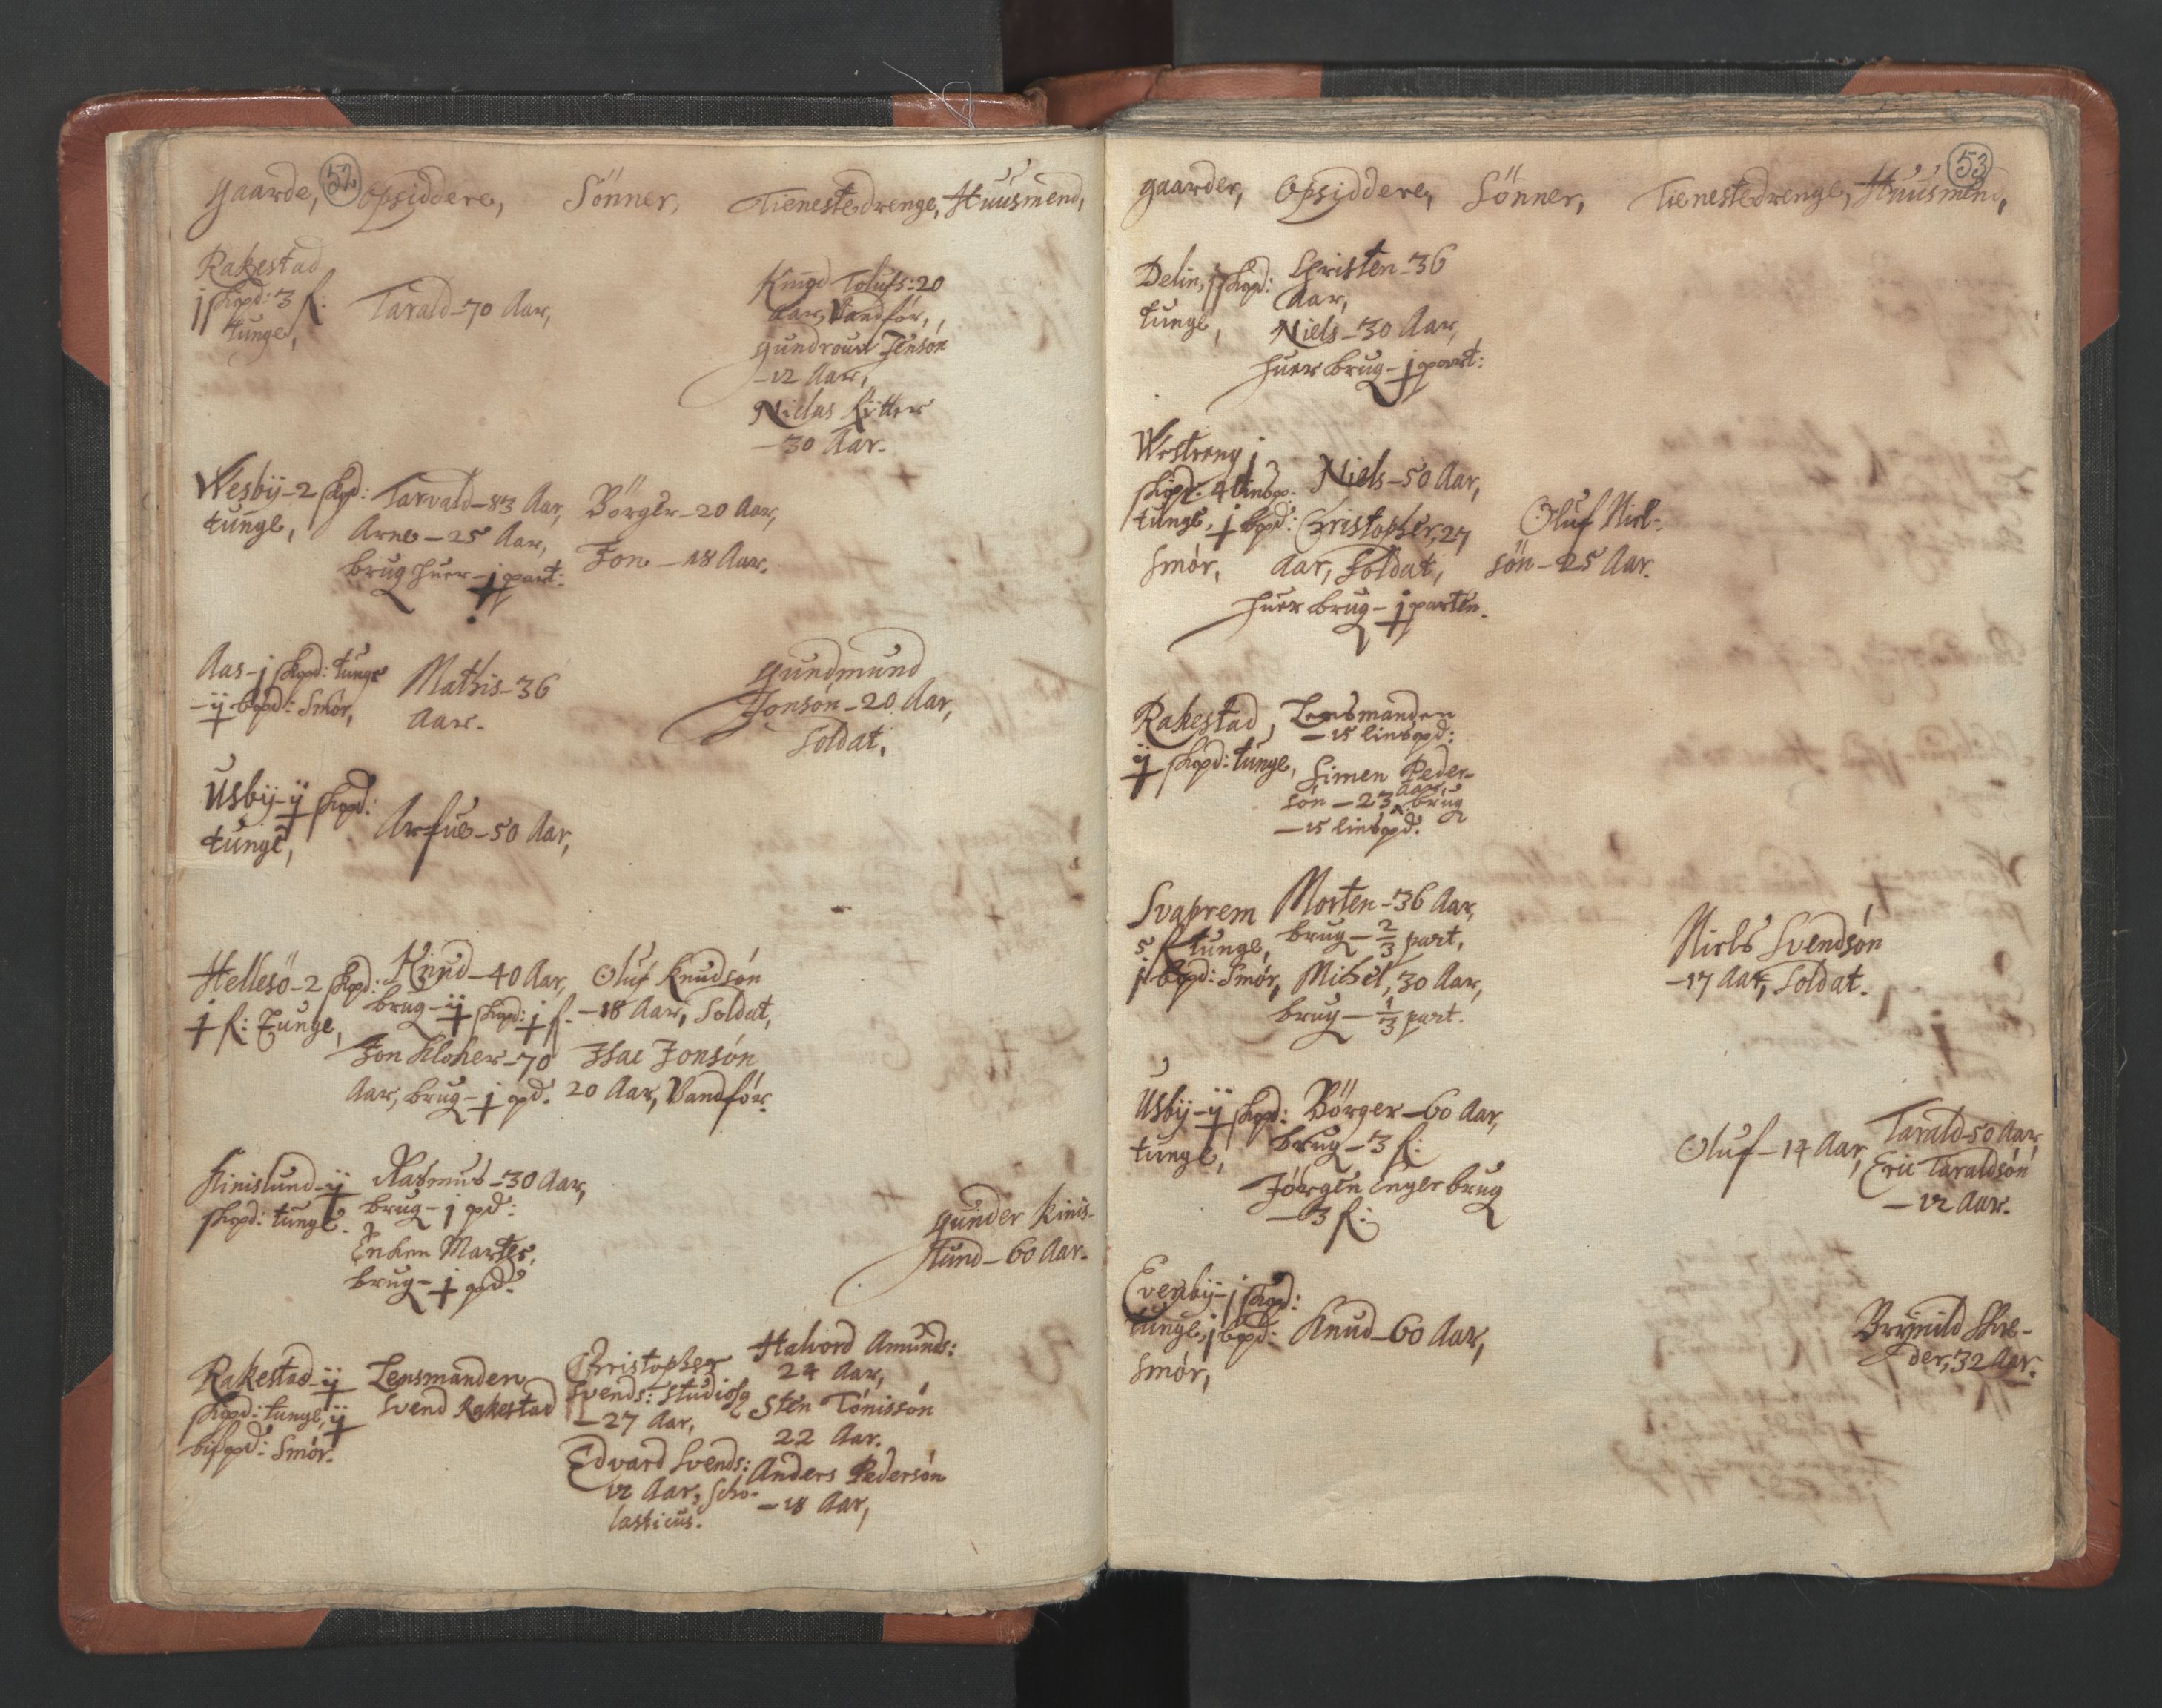 52
Gaarde, Opsiddere, Sönner, Tienestedrenge, Huusmend,
Rakestad
j skpd: 3 f:
tunge,
Tarald - 70 Aar,
Knud Tolufs: 20
Aar, Vandför,
Gundrour Jensön
- 12 Aar,
Niclas Rytter
- 30 Aar.
Wesbÿ - 2 skpd:
tunge,
Tarvald - 83 Aar,
Arne - 25 Aar,
brug huer - j part:
Börger - 20 Aar,
Jon - 18 Aar.
Aas - j skpd: tunge
- ÿ bpd: Smör,
Mathis - 36
Aar.
Gundmund
Jonsön - 20 Aar,
Soldat,
Usbÿ - ÿ skpd:
tunge,
Arfue - 50 Aar,
Hellesö - 2 skpd:
j f: Tunge,
Knud - 40 Aar,
brug - ÿ skpd: j f.
Jon Kloker - 70
Aar, brug - j pd.
Oluf Knudsön
- 18 Aar, Soldat,
Isac Jonsön
20 Aar, Vandför.
Kinislund - ÿ
skpd: tunge.
Rasmus - 30 Aar,
brug - j pd:
Enken Marte,
brug - j pd.
Gunder Kinis-
lund - 60 Aar.
Rakestad - ÿ
skpd: tunge, ÿ
bispd: Smör.
Lensmanden
Svend Rakestad
Christopher
Svends: Studiosq
- 27 Aar,
Edvard Svends:
12 Aar, Scho-
lasticus.
Halvord Amunds:
24 Aar,
Sten Tönissön
22 Aar.
Anders Pedersön
- 18 Aar,
53
Gaarder, Opsiddere, Sönner, Tienestedrenge, Huusmend,
Delin, j skpd:
tunge,
Christen - 36
Aar,
Niels - 30 Aar,
huer brug - j part:
Westreng j
skpd. 4 linsp.
tunge, j bpd:
Smör,
Niels - 50 Aar,
Christopher, 27
Aar, Soldat,
huer brug - j parten.
Oluf Niel-
sön - 25 Aar.
Rakestad,
ÿ skpd: tunge,
Lensmanden
- 15 linspd:
Simen Peder-
sön - 23 Aar, brug
- 15 linspd.
Svaprem
5 f tunge,
j bpd: Smör,
Morten - 36 Aar,
brug - 2/3 part,
Michel, 30 Aar,
brug - 1/3 part.
Niels Svendsön
- 17 Aar, Soldat.
Usbÿ - ÿ skpd:
tunge,
Börger - 60 Aar,
brug - 3 f:
Jörgen Enger brug
- 3 f:
Oluf - 14 Aar,
Tarald - 50 Aar,
Eric Taraldsön
- 12 Aar.
Evenbÿ - j skpd:
tunge, j bpd:
Smör,
Knud - 60 Aar,
Brÿnild Skre-
der, 32 Aar.